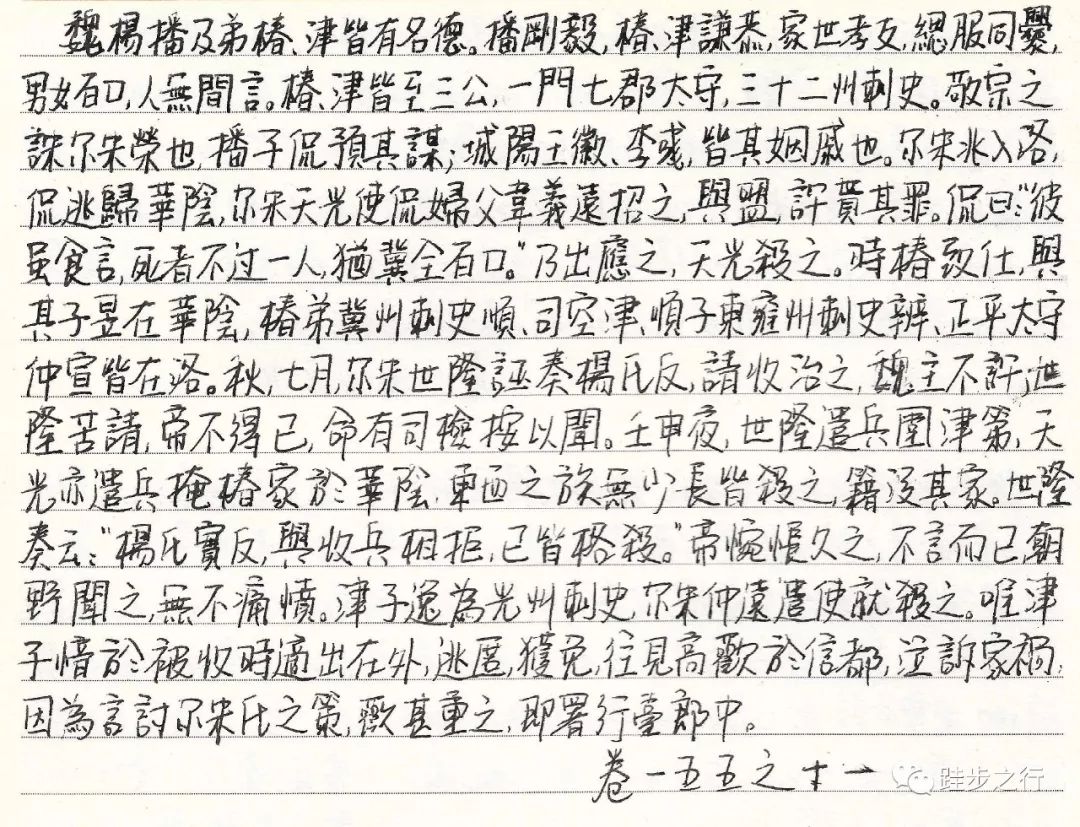 魏楊播及弟椿、津皆有名德。播剛毅，椿、津謙恭，家世孝友，緦服同爨，
男女百口，人無間言。椿、津皆至三公，一門七郡太守，三十二州刺史。敬宗之
誅尔朱榮也，播子侃預其謀；城陽王徽、李彧，皆其姻戚也。尔朱兆入洛，
侃逃歸華陰，尔朱天光使侃婦父韋義遠招之，與盟，許貰其罪。侃曰："彼
虽食言，死者不过一人，猶冀全百口。"乃出應之，天光殺之。時椿致仕，與
其子昱在華陰，椿弟冀州刺史順、司空津、順子東雍州刺史辨、正平太守
仲宣皆在洛。秋，七月，尔朱世隆誣奏楊氏反，請收治之，魏主不許；世
隆苦請，帝不得已，命有司檢按以聞。壬申夜，世隆遣兵圍津第，天
光亦遣兵掩椿家於華陰，東西之族無少長皆殺之，籍沒其家。世隆
奏云："楊氏實反，與收兵相拒，已皆格殺。"帝惋悵久之，不言而已，朝
野聞之，無不痛憤。津子逸為光州刺史，尔朱仲遠遣使就殺之。唯津
子愔於被收時適出在外，逃匿，獲免，往見高歡於信都，泣訴家禍，
因為言討尔朱氏之策，歡甚重之，即署行臺郎中。
卷一五五之十一
跬步之行